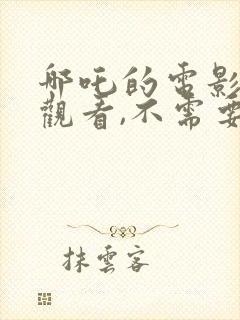 哪吒的電影
觀看,不需要
抹雲客